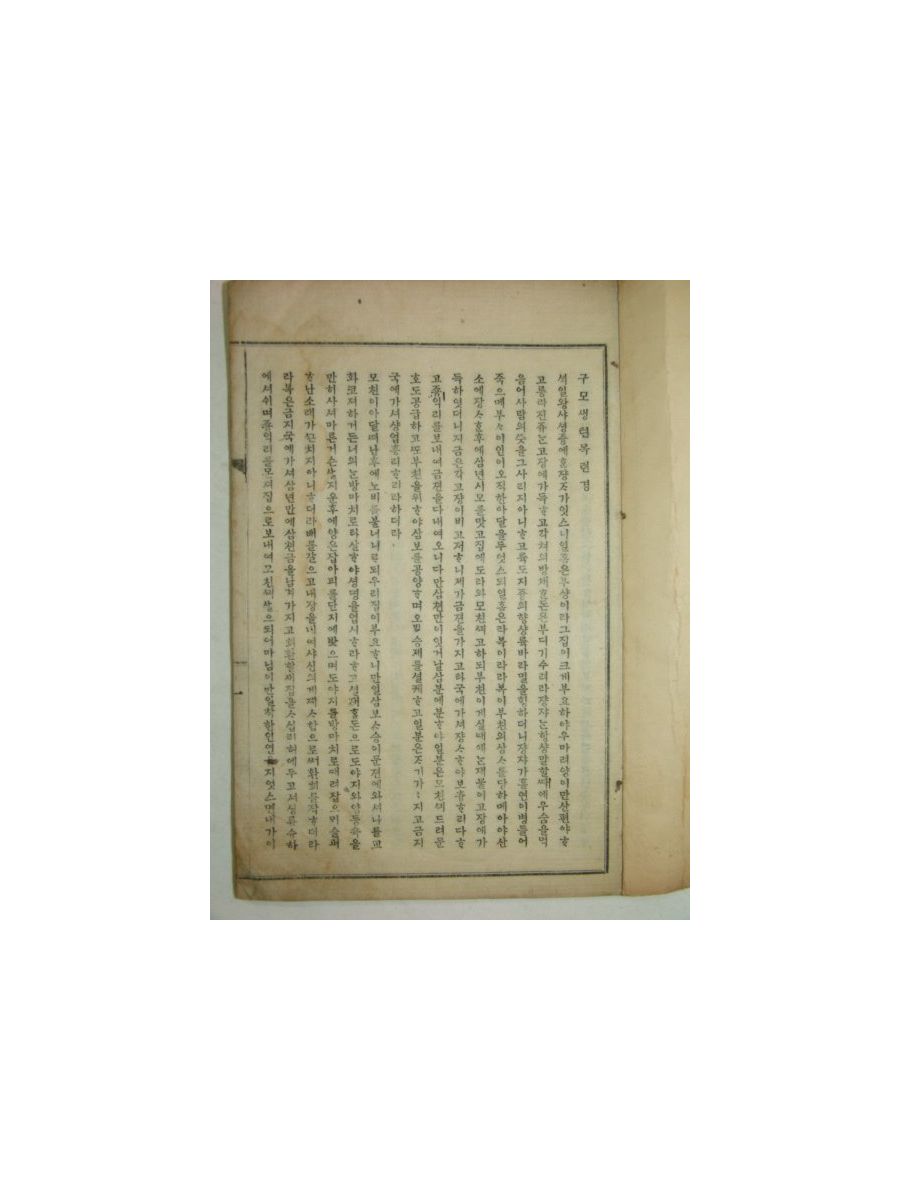 구모생텬목련경
석일왕샤셩즁에ᄒᆞᆫ쟝ᄌᆞ가잇스니일홈은부샹이라그집이크게부요하야우마려양이만산편야ᄒᆞ
고릉라진쥬ᄂᆞᆫ고장에가득ᄒᆞ고각쳐의방채ᄒᆞᆫ돈은부디기수러라쟝쟈ᄂᆞᆫ항샹말할ᄯᅢ에우슴을먹
을어사람의ᄯᅳᆺ을그사리지아니ᄒᆞ고륙도지즁의항샹륙바라밀을힝하더니쟝쟈가홀연이병들어
죽으메부ᄉᆞ이인이오직하아달을두엇스되일홈은라복이라라복이부친의상ᄉᆞ를당하메아야산
소에장ᄉᆞᄒᆞᆫ후에삼년시모를맛고집에도라와모친ᄭᅴ고하되부친이계실때에ᄂᆞᆫ재물이고장애가
득하엿더니지금은각고쟝이비고저ᄒᆞ니제가금젼을가지고타국에가셔쟝ᄉᆞᄒᆞ야보ᄀᆞᆺᄒᆞ리다ᄒᆞ
고죵익리를보내여금젼을다내여오니다만삼쳔만이잇거날삼분에분ᄒᆞ야일분은모친ᄭᅴ드려문
호도공급하고ᄯᅩ부친을위ᄒᆞ야삼보를공양ᄒᆞ며오ᄇᆡᆨ승제를셜케ᄒᆞ고일분은ᄌᆞ기가가지고금지
국에가셔샹업흥리ᄒᆞ리라하더라
모친이아달ᄯᅥ난후에노비를불너니르되우리집이부요ᄒᆞ니만일삼보ᄉᆞ승이문젼에와셔나를교
화코져하거든너의ᄂᆞᆫ방마치로타살ᄒᆞ야셩명을업시ᄒᆞ라ᄒᆞ고셜재ᄒᆞᆯ돈으로도야지와양등륙을
만히사셔마른거슨살지운후에양은잡아피를단지에밧으며도야지를방마치로때려잡으미슬피
ᄒᆞ난소래가ᄭᅳᆫ치지아니ᄒᆞ더라배를갈으고내장을ᄂᆡ여샤신의게졔ᄉᆞ함으로써환희를작ᄒᆞ더라
라복은금지국에가셔삼년만에삼쳔금을남겨가지고회환할ᄉᆡ집을ᄉᆞ십리허에두고셔셩류슈하
에셔쉬며죵익리를모셔집으로보내여모친ᄭᅴ살으되어마님이만일착한인연을지엇스면내가이